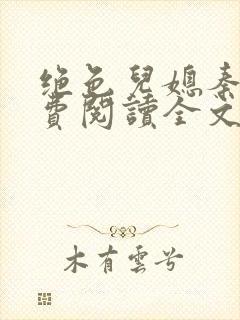 绝色兒媳秦
費閱讀全文
木有雲兮